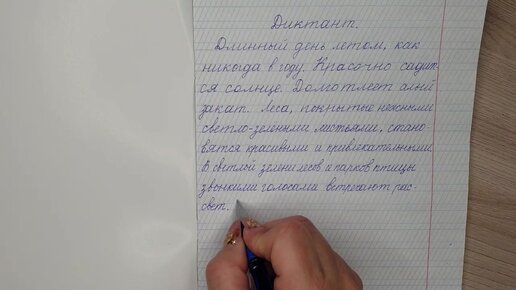 Диктант.
Длинный день летом, как
никогда в году. Красочно садит-
ся солнце. Долго тлеет алый
закат. Леса, покрытые нежными
светло-зелеными листьями, стано-
вятся красивыми и привлекательными.
В светлой зелени лесов и парков птицы
звонкими голосами встречают рас-
свет.